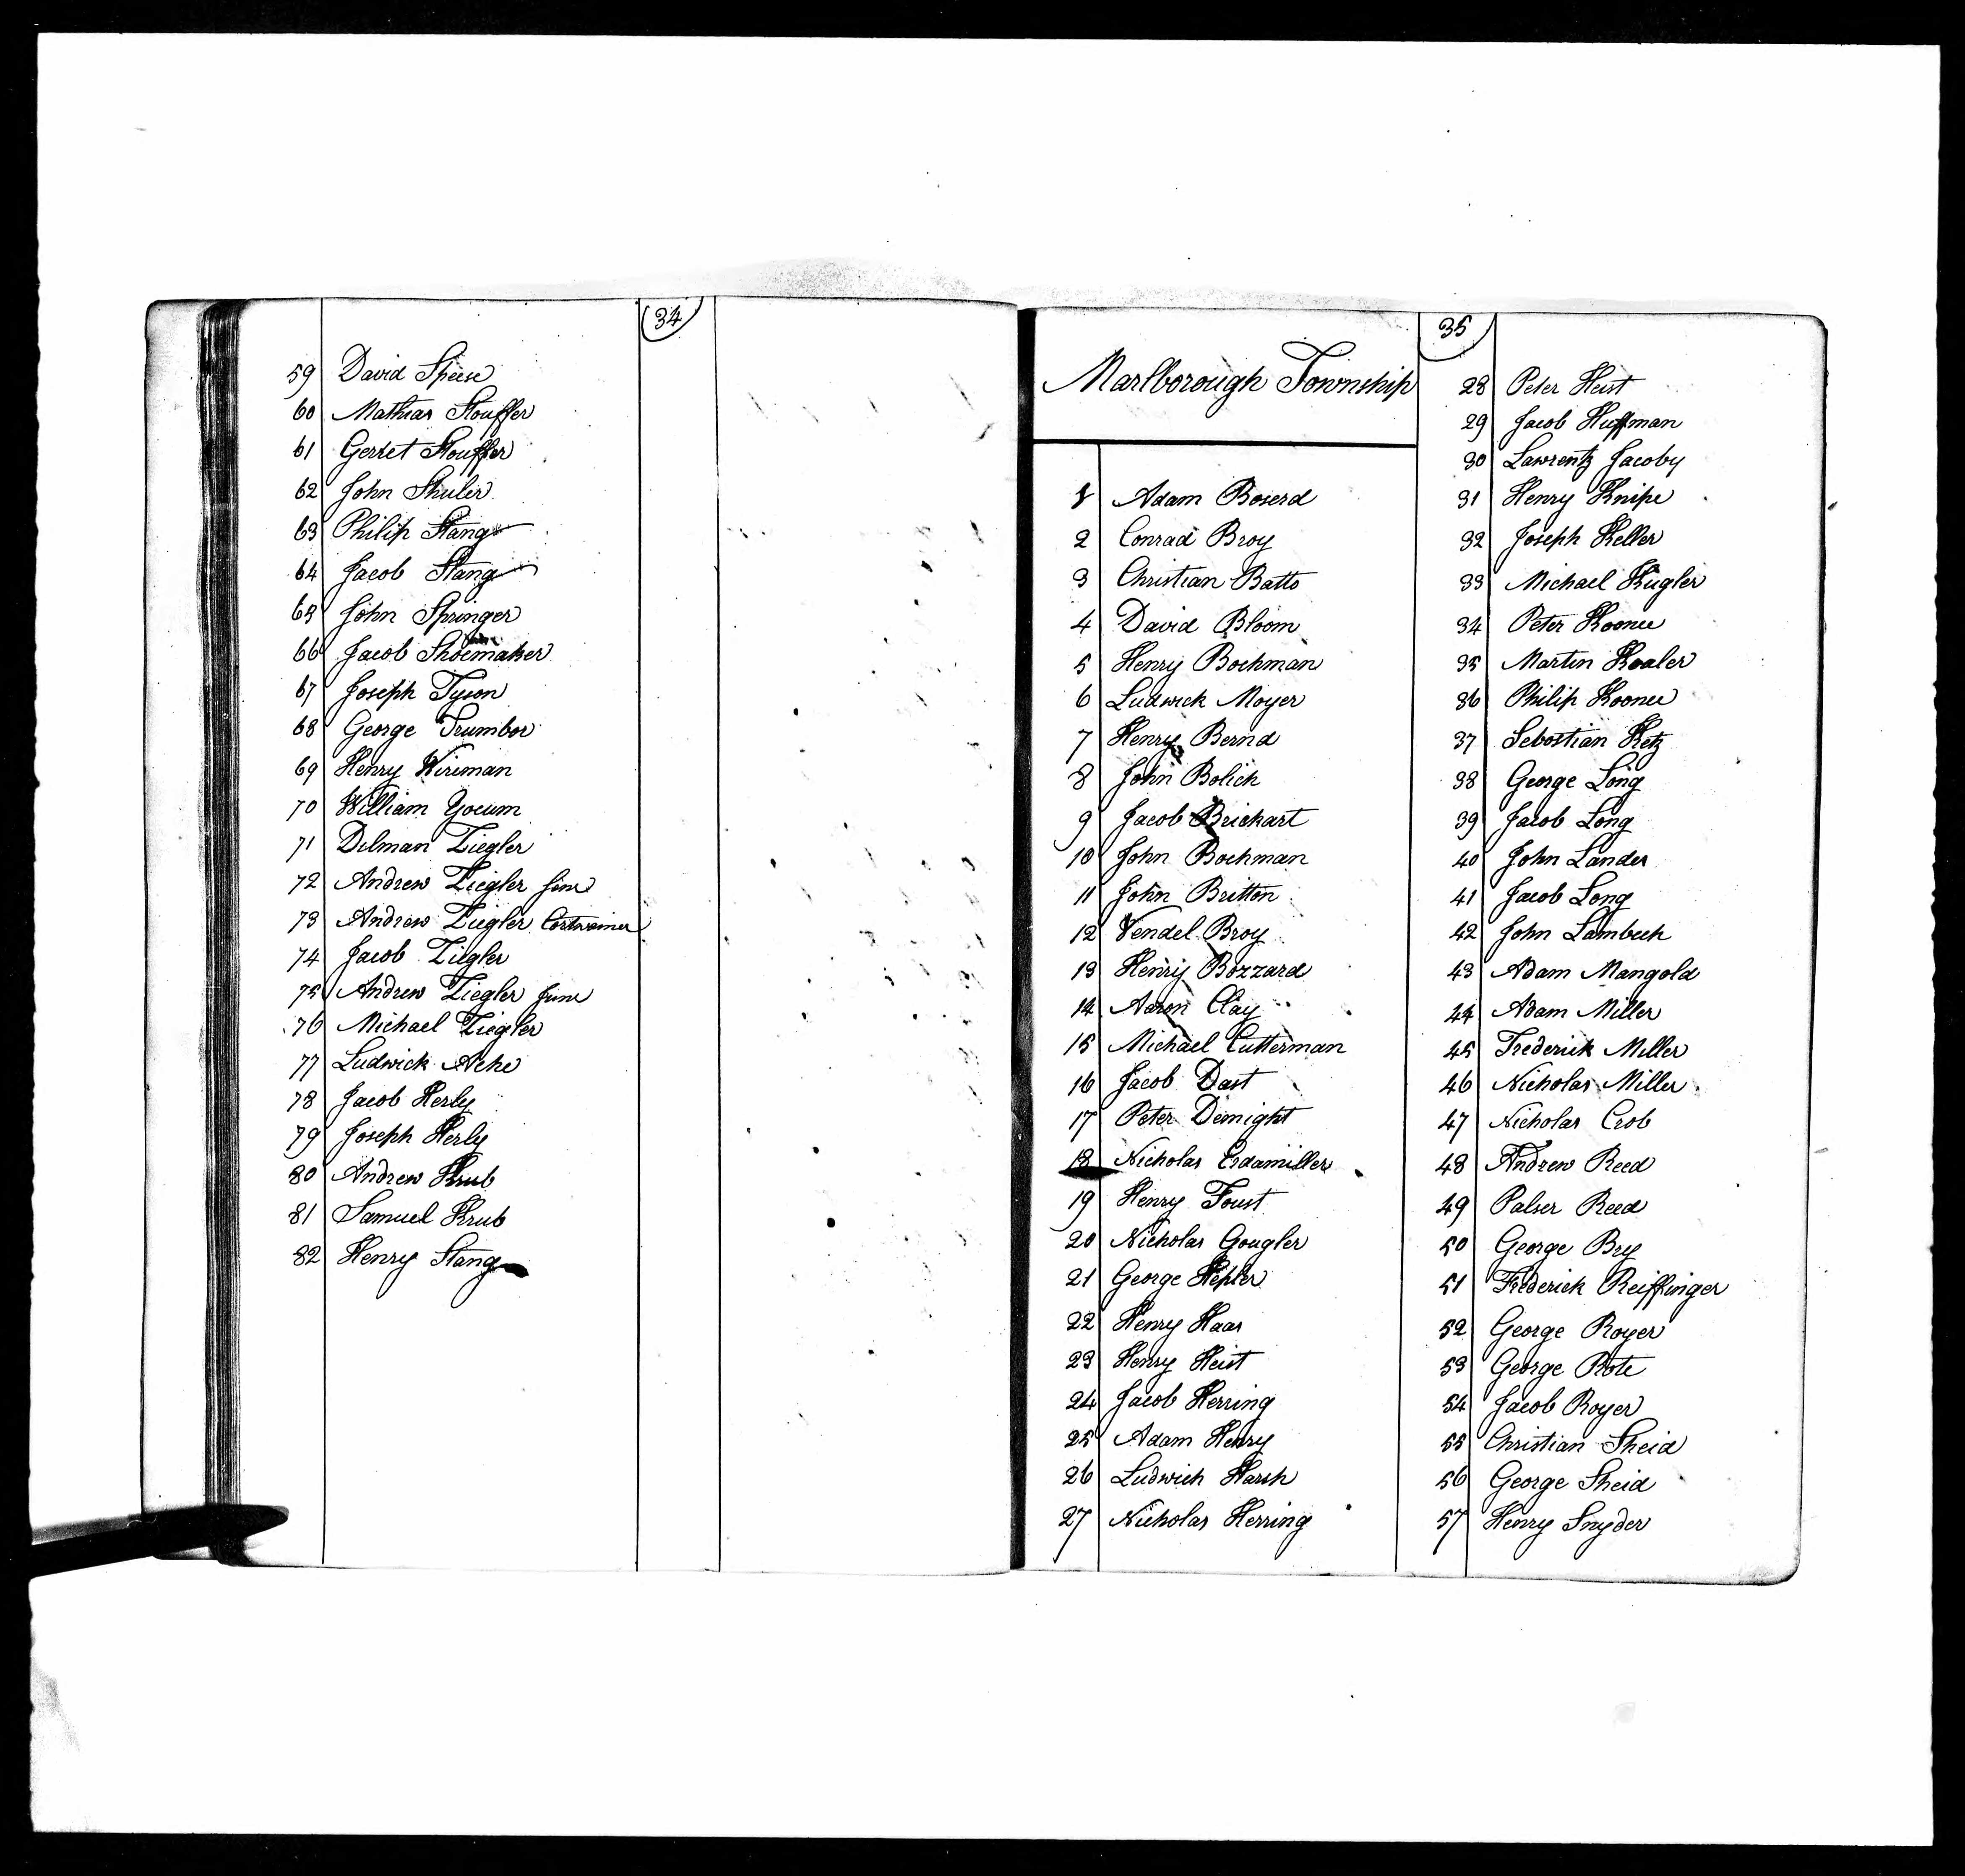 34
59 David Speese
60 Mathias Stouffer
61 Gerret Stouffer
62 John Shuler
63 Philip Stang
64 Jacob Stang
65 John Springer
66 Jacob Shoemaker
67 Joseph Tyson
68 George Trumbor
69 Henry Wireman
70 William Yocum
71 Dilman Ziegler
72 Andrew Ziegler
73 Andrew Ziegler
74 Jacob Ziegler
75 Andrew Ziegler Junr
76 Michael Ziegler
77 Ludwick Ache
78 Jacob Herly
79 Joseph Herly
80 Andrew Krub
81 Samuel Krub
82 Henry Stang
35
Marlborough Township
1 Adam Boserd
2 Conrad Broy
3 Christian Batto
4 David Bloom
5 Henry Bochman
6 Ludwick Moyer
7 Henry Bernd
8 John Bolich
9 Jacob Brichart
10 John Bochman
11 John Britton
12 Vendel Broy
13 Henry Bozzard
14 Aaron Clay
15 Michael Cutterman
16 Jacob Dast
17 Peter Demight
18 Nicholas Erdamiller
19 Henry Foust
20 Nicholas Gougler
21 George Hepler
22 Henry Haas
23 Henry Heist
24 Jacob Herring
25 Adam Henry
26 Ludwich Harsh
27 Nicholas Herring
28 Peter Heist
29 Jacob Huffman
30 Lawrentz Jacoby
31 Henry Knipe
32 Joseph Keller
33 Michael Kugler
34 Peter Koonee
35 Martin Koaler
36 Philip Koonee
37 Sebostian Ketz
38 George Long
39 Jacob Long
40 John Lander
41 Jacob Long
42 John Lambech
43 Adam Mangold
44 Adam Miller
45 Frederick Miller
46 Nicholas Miller
47 Nicholas Crob
48 Andrew Reed
49 Palser Reed
50 George Bry
51 Frederick Reiffinger
52 George Royer
53 George Rote
54 Jacob Royer
55 Christian Sheid
56 George Sheid
57 Henry Snyder